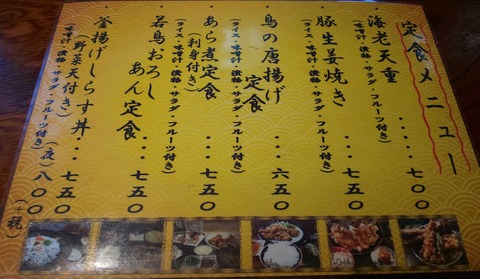 定食メニュー
・海老天重 ・・・ 七〇〇
(味噌汁・漬物・サラダ・フルーツ付き)
・豚生姜焼き ・・・ 七五〇
(ライス・味噌汁・漬物・サラダ・フルーツ付き)
・鳥の唐揚げ定食 ・・・ 六五〇
(ライス・味噌汁・漬物・サラダ・フルーツ付き)
・あら煮定食 ・・・ 七五〇
(刺身付き)
(ライス・味噌汁・漬物・サラダ・フルーツ付き)
・若鳥おろしあん定食 ・・・ 七五〇
・釜揚げしらす丼 ・・・ 七五〇
(野菜天付き)
(夜) 八〇〇
(味噌汁・漬物・サラダ・フルーツ付き)
(+税)